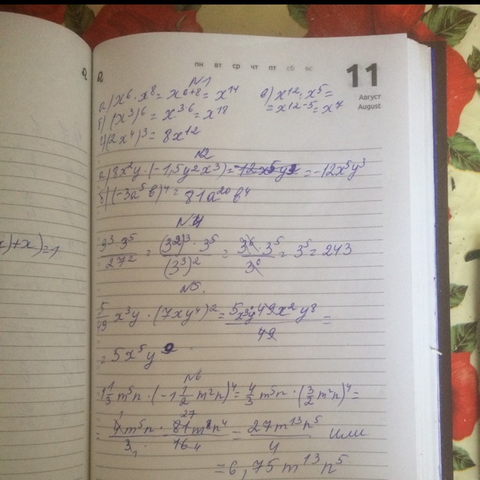 пн вт ср чт пт сб вс
11
Август
August
N1
а) x⁶·x⁸=x⁶⁺⁸=x¹⁴
в) x¹²:x⁵=
=x¹²⁻⁵=x⁷
б) (x³)⁶=x³·⁶=x¹⁸
г) (2x⁴)³=8x¹²
N2
а) 8x²y·(-1,5y²x³)=-12x⁵y³
б) (-3a⁵b)⁴=81a²⁰b⁴
N4
9³·3⁵/27²=(3²)³·3⁵/(3³)²=3⁶·3⁵/3⁶=3⁵=243
N5.
5/49 x³y·(7xy⁴)²=5x³y·49x²y⁸/49=
=5x⁵y⁹
N6
1 1/3 m⁵n·(-1 1/2 m²n)⁴=4/3 m⁵n·(3/2 m²n)⁴=
=4m⁵n·81m⁸n⁴/3·16=27m¹³n⁵/4 или
=6,75m¹³n⁵
x)+x)=1